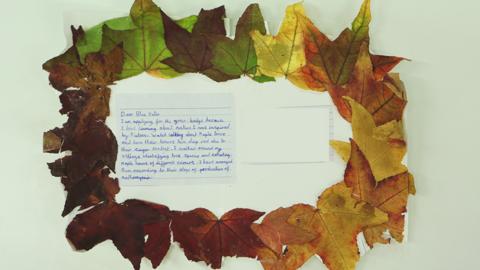 Dear Blue Peter
I am applying for the green badge because
I love learning about nature. I was inspired
by
talking about Maple trees
and how their leaves
due to
their sugar content. I walked around my
village identifying tree species and collecting
maple leaves of different colours. I have arranged
them according to their stage of production of
anthocyanin.